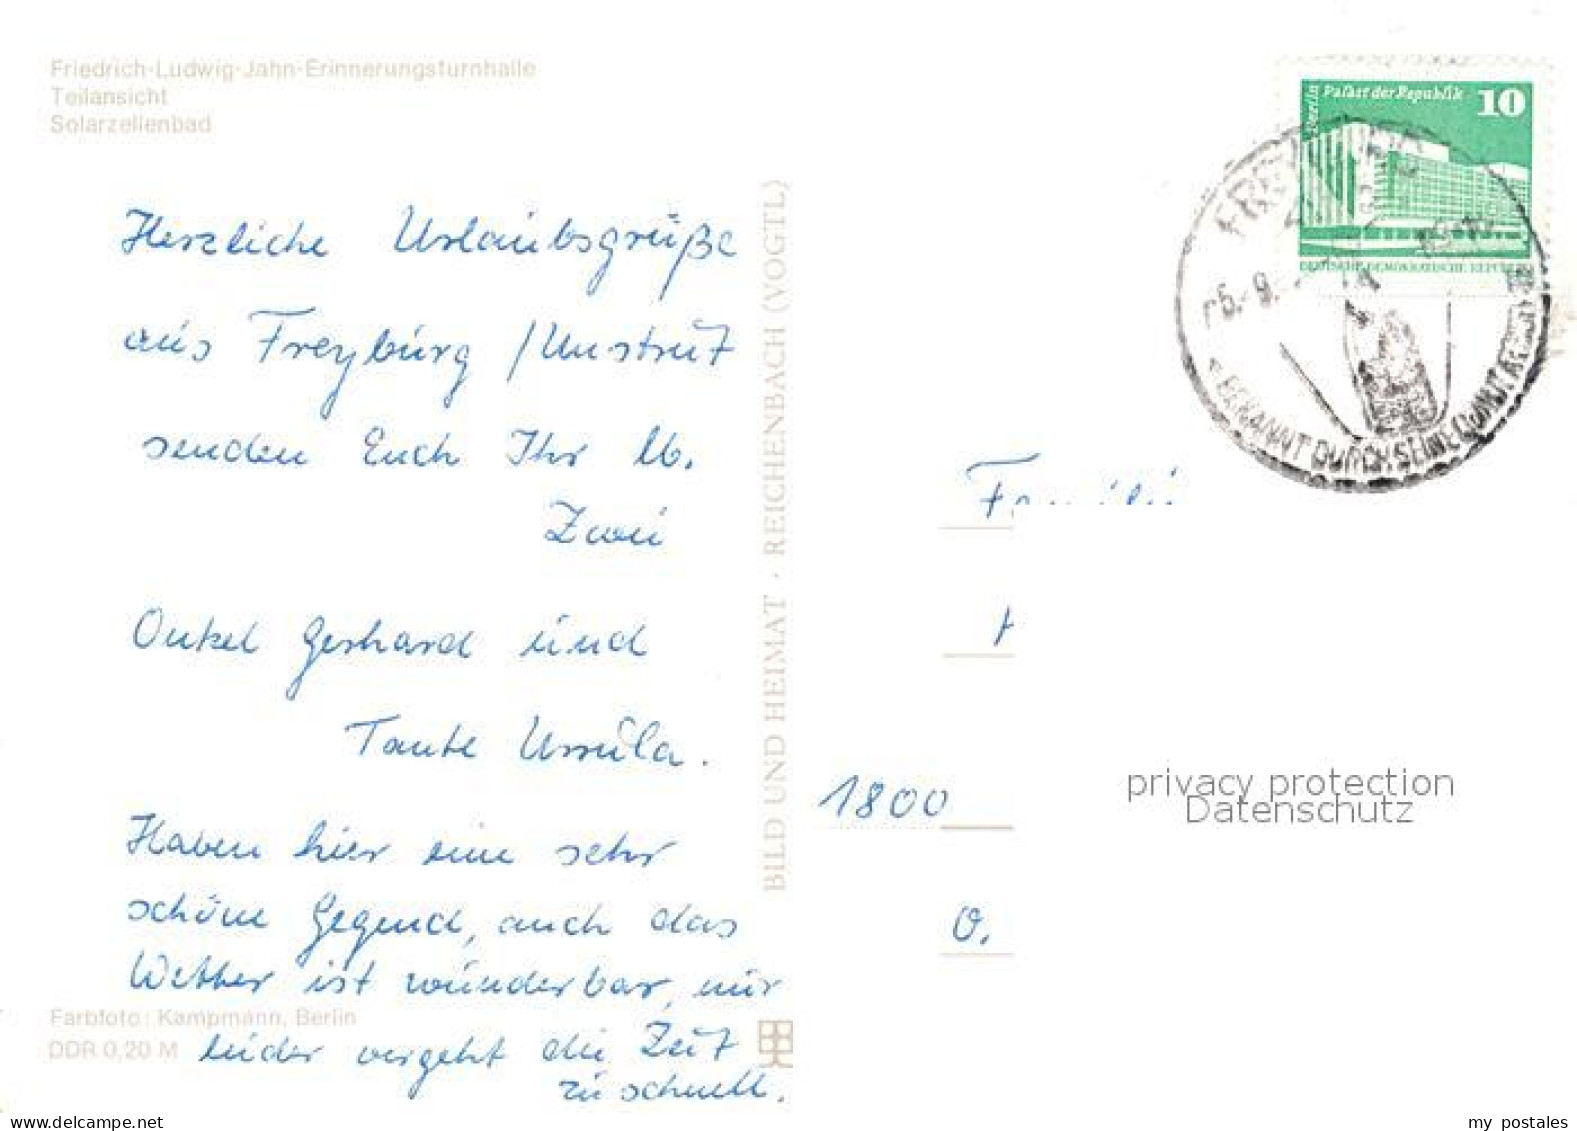 Friedrich-Ludwig-Jahn-Erinnerungsturnhalle
Teilansicht
Solarzellenbad
Berlin Palast der Republik 10
DEUTSCHE DEMOKRATISCHE REPUBLIK
BEKANNT DURCH SEINE
Herzliche Urlaubsgrüße
aus Freyburg / Unstrut
senden Euch Ihr lb.
Zwei
Onkel Gerhard und
Tante Ursula.
Haben hier eine sehr
schöne Gegend, auch das
Wetter ist wunderbar, nur
leider vergeht die Zeit
zu schnell.
Farbfoto: Kampmann, Berlin
DDR 0,20 M
BILD UND HEIMAT · REICHENBACH (VOGTL)
1800
O.
privacy protection
Datenschutz
www.delcampe.net
my postales